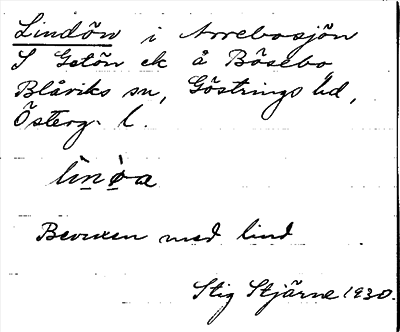 Lindön i Norrebosjön
S Getön ek å Bösebo
Blåviks sn, Göstrings hd,
Österg. l.
lìnø̀a
Bevuxen med lind
Stig Stjärne 1930.